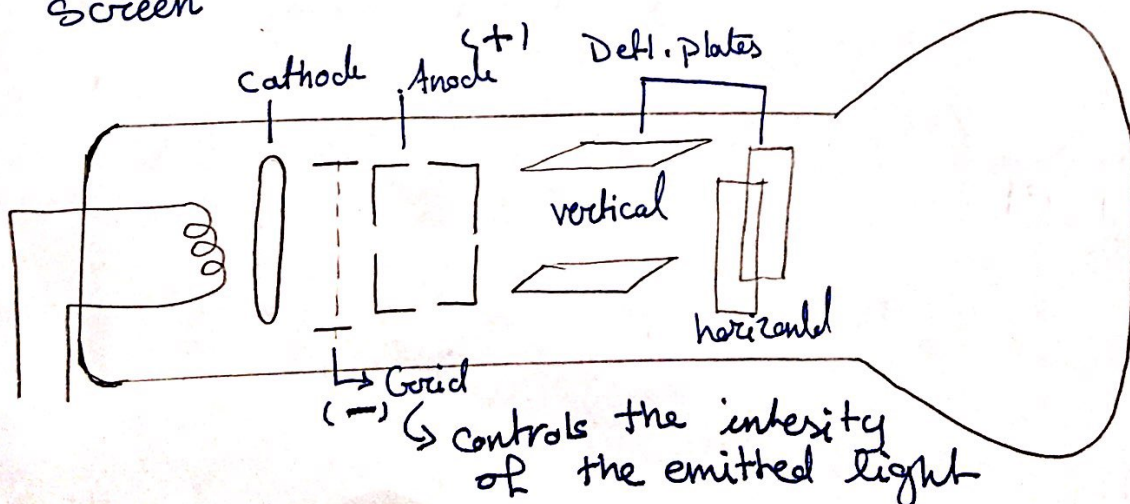 Screen
Cathode
Anode (+)
Defl. plates
vertical
horizontal
Grid
(-)
controls the intesity
of the emitted light